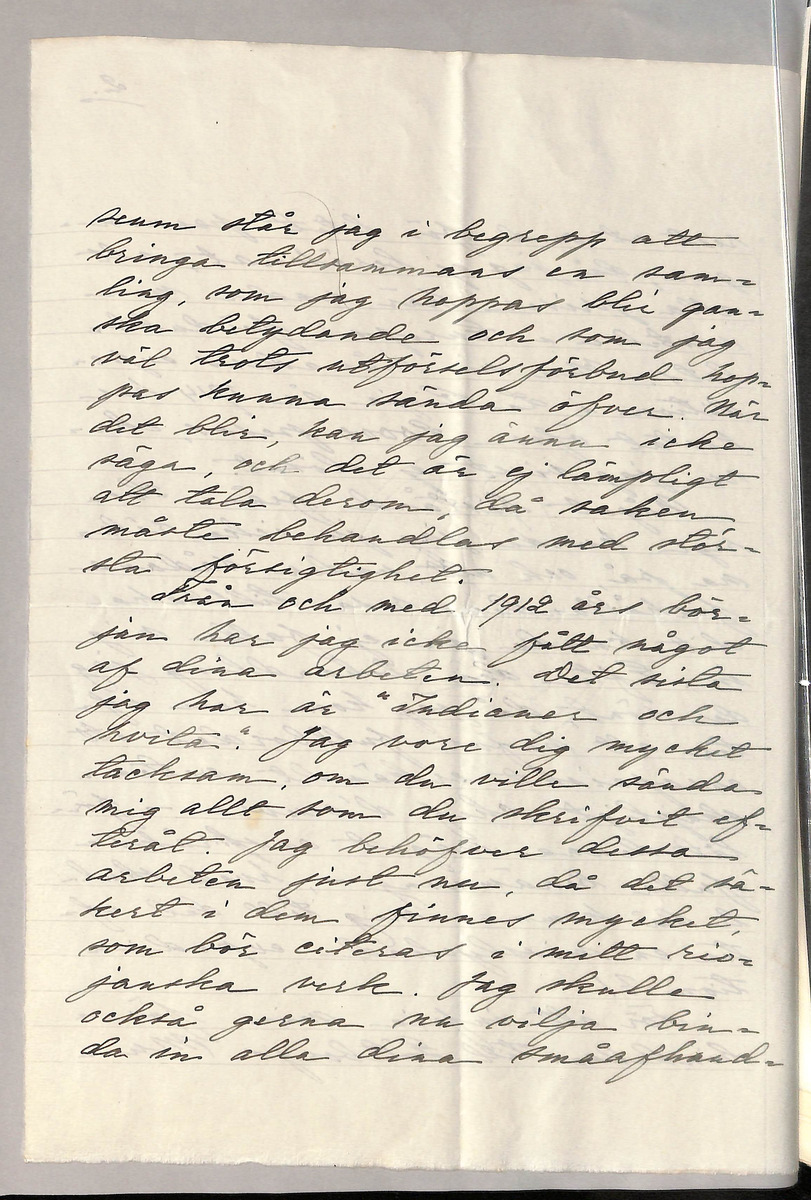 seum står jag i begrepp att
bringa tillsammans en sam-
ling, som jag hoppas blir gan-
ska betydande och som jag
väl trots utförselsförbud hop-
pas kunna sända öfver. När
det blir, kan jag ännu icke
säga, och det är ej lämpligt
att tala derom, då saken
måste behandlas med stör-
sta försigtighet.
Från och med 1912 års bör-
jan har jag icke fått något
af dina arbeten. Det sista
jag har är "Indianer och
hvita". Jag vore dig mycket
tacksam, om du ville sända
mig allt som du skrifvit ef-
teråt. Jag behöfver dessa
arbeten just nu, då det sä-
kert i dem finnes mycket,
som bör citeras i mitt rio-
janska verk. Jag skulle
också gerna nu vilja bin-
da in alla dina småafhand-